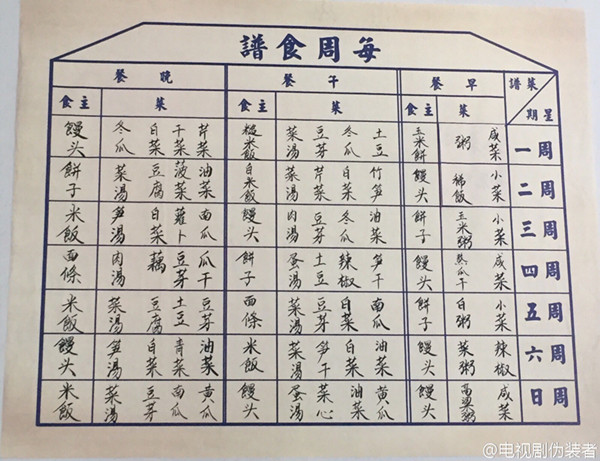 每周食譜
菜譜 星期 早餐 午餐 晚餐
菜 主食 菜 主食 菜 主食
周一 咸菜 粥 玉米餅 土豆 冬瓜 豆芽 菜湯 糙米飯 芹菜 干菜 白菜 冬瓜 饅头
周二 小菜 稀飯 饅头 竹笋 白菜 芹菜 菜湯 白米飯 油菜 菠菜 豆腐 菜湯 餅子
周三 小菜 玉米粥 餅子 油菜 冬瓜 豆芽 肉湯 饅头 南瓜 蘿卜 白菜 笋湯 米飯
周四 咸菜 瓜干 饅头 笋干 辣椒 土豆 蛋湯 餅子 瓜干 豆芽 藕 肉湯 面條
周五 小菜 白粥 餅子 南瓜 白菜 豆芽 菜湯 面條 豆芽 土豆 豆腐 菜湯 米飯
周六 辣椒 菜粥 饅头 油菜 白菜 笋干 菜湯 米飯 油菜 青菜 白菜 笋湯 饅头
周日 咸菜 粥 饅头 黄瓜 油菜 菜心 蛋湯 饅头 黄瓜 南瓜 豆芽 菜湯 米飯
@电视剧伪装者